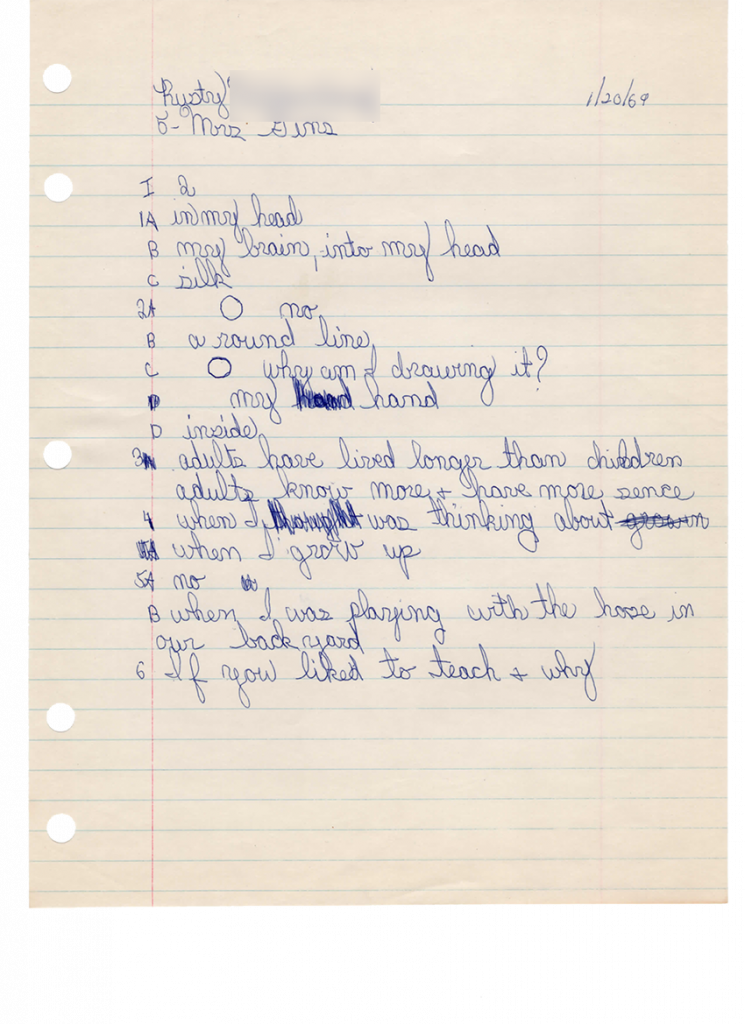 Rustry
1/20/69
5- Mrs. Gins
I 2
1A in my head
B my brain, into my head
C silk
2A no
B a round line
C why am I drawing it?
D my hand
D inside
3A adults have lived longer than children
adults know more + have more sence
4 when I was thinking about grown
when I grow up
5A no
B when I was playing with the hose in
our back yard
6 If you liked to teach + why